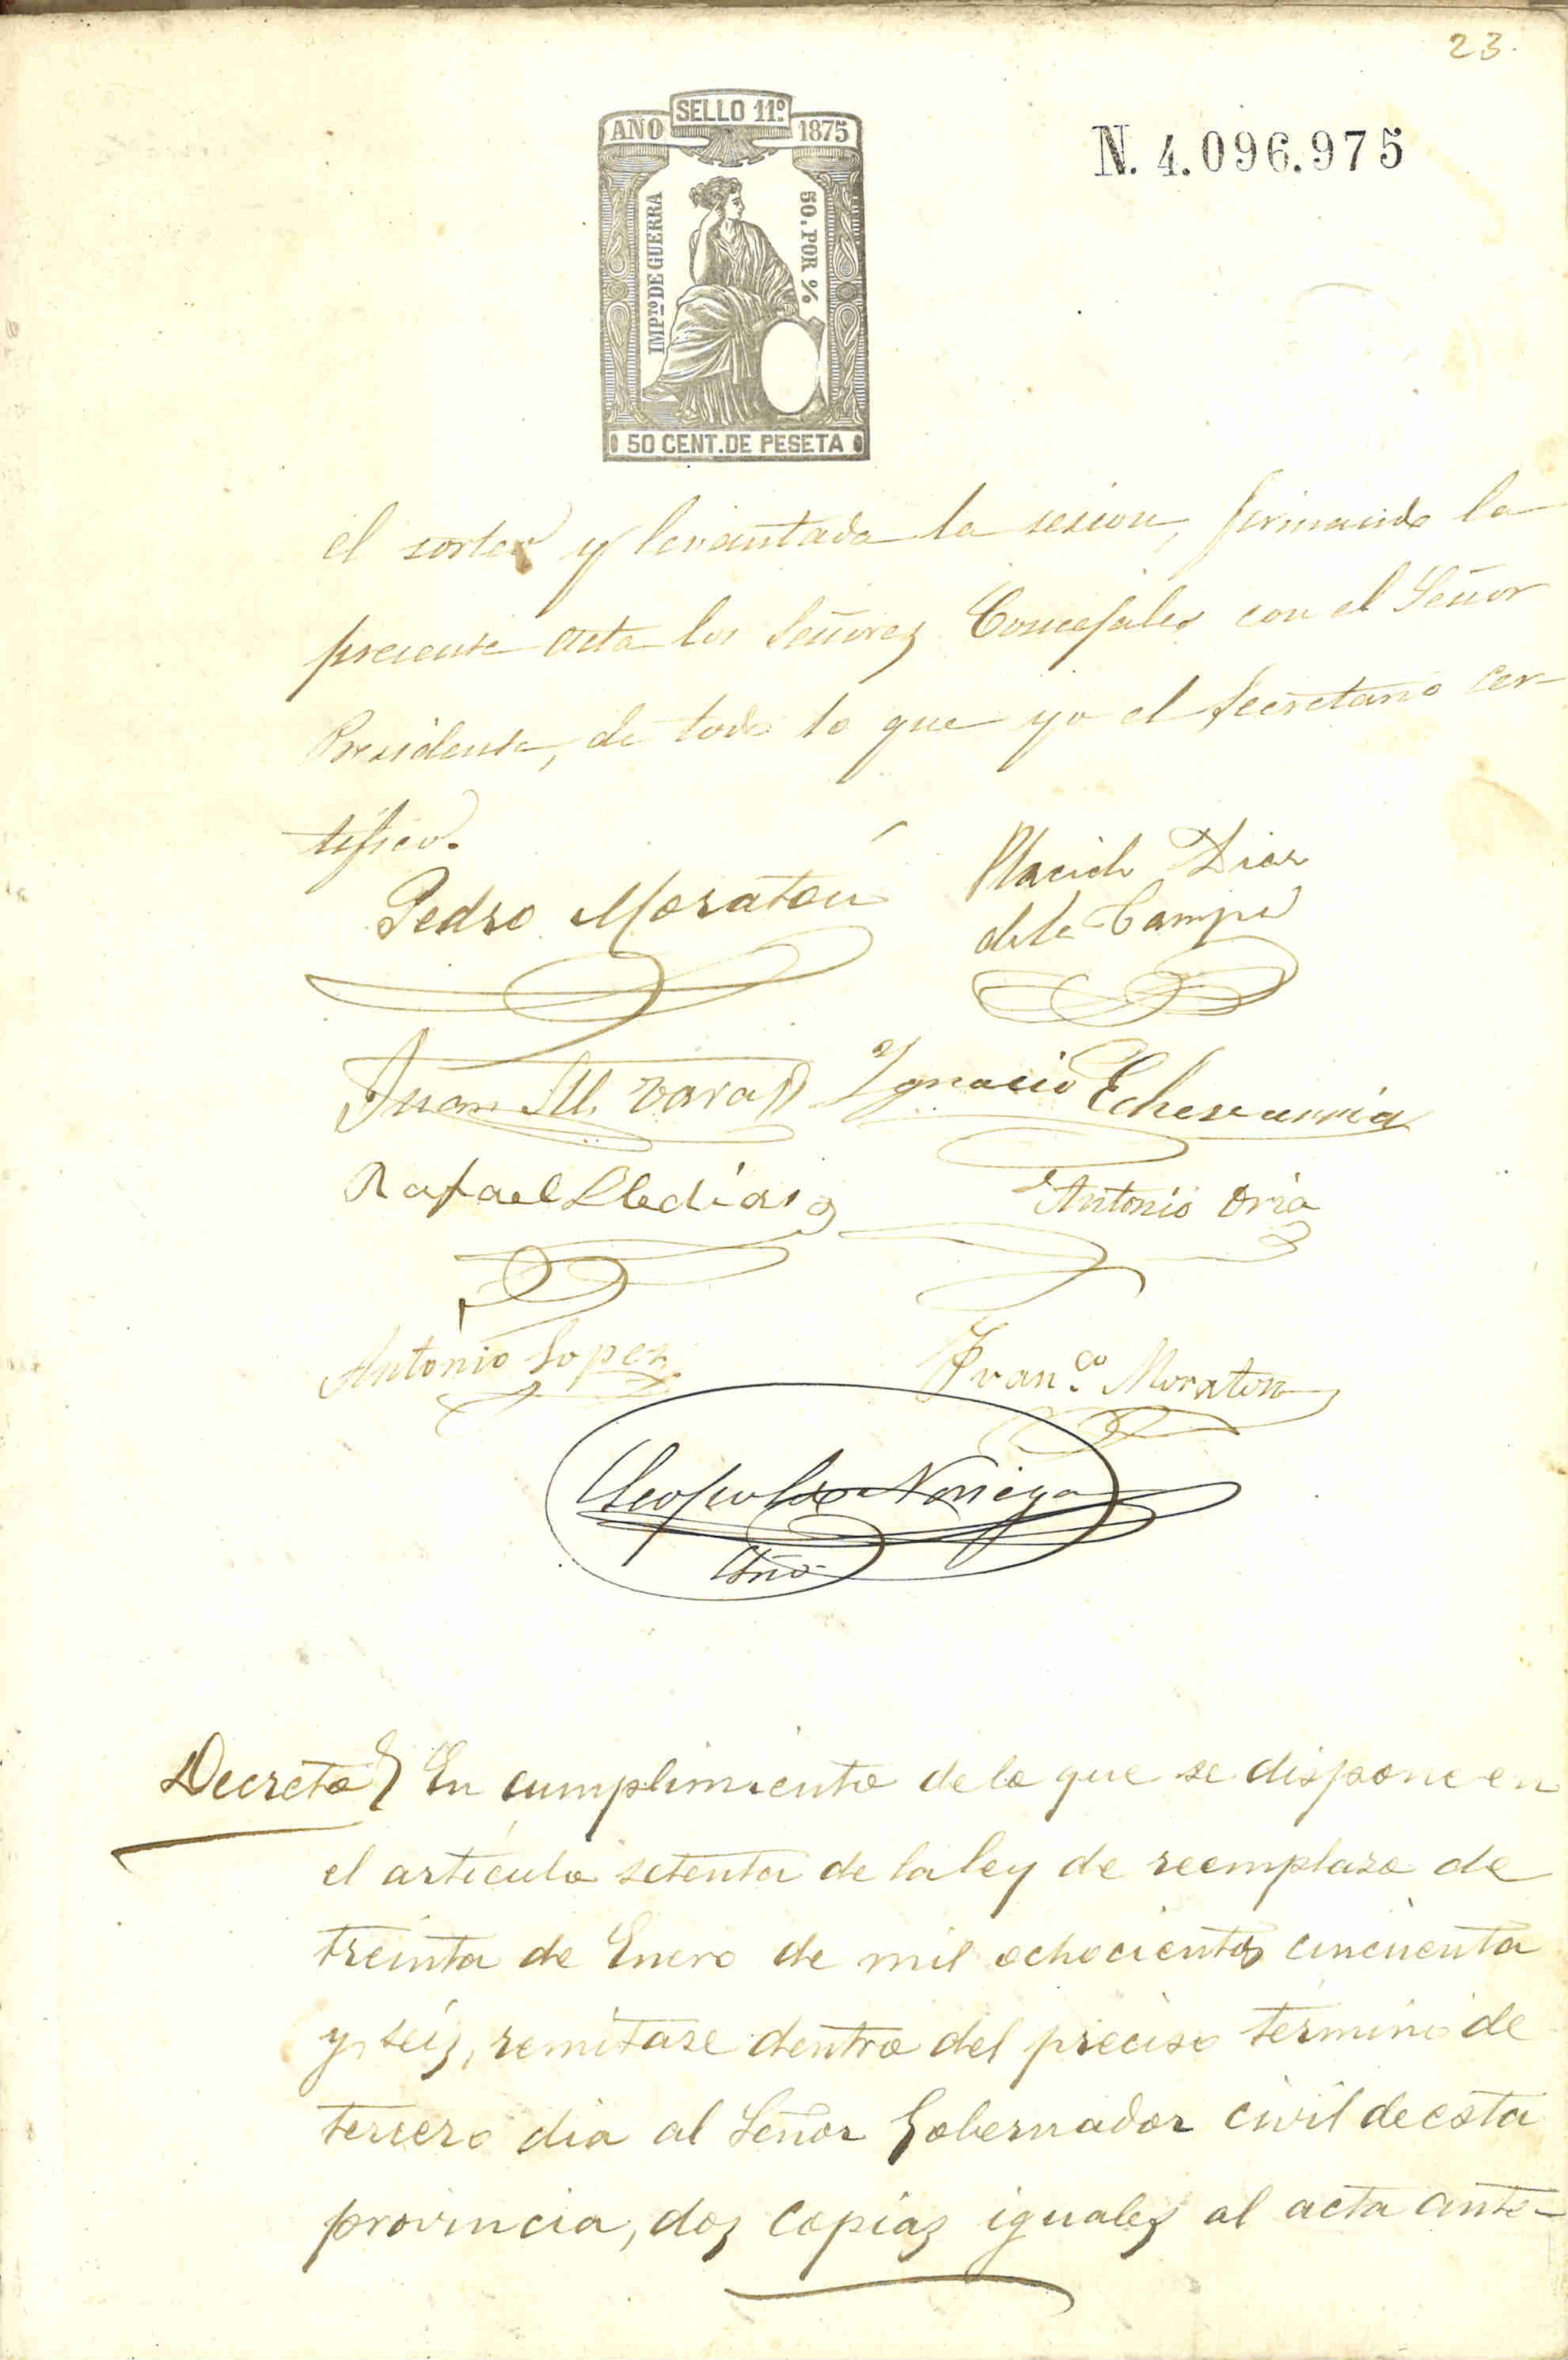 23.
SELLO 11º
AÑO 1875
N. 4.096.975
IMPTO DE GUERRA
50. POR %
50 CENT. DE PESETA
el sorteo y levantada la sesion, firmando la
presente acta los Señores Concejales con el Señor
Presidente, de todo lo que yo el Secretario cer-
tifico.
Pedro Moratón
Placido Diaz
de la Campa
Juan M. Vara
Ygnacio Echevarria
Rafael
Antonio Oria
Antonio Lopez
Franco. Moraton
Leopoldo Noriega
Srio
Decreto En cumplimiento de lo que se dispone en
el artículo setenta de la ley de reemplazo de
treinta de Enero de mil ochocientos cincuenta
y seis, remítase dentro del preciso término de
tercero dia al Señor Gobernador civil de esta
provincia, dos copias iguales al acta ante-